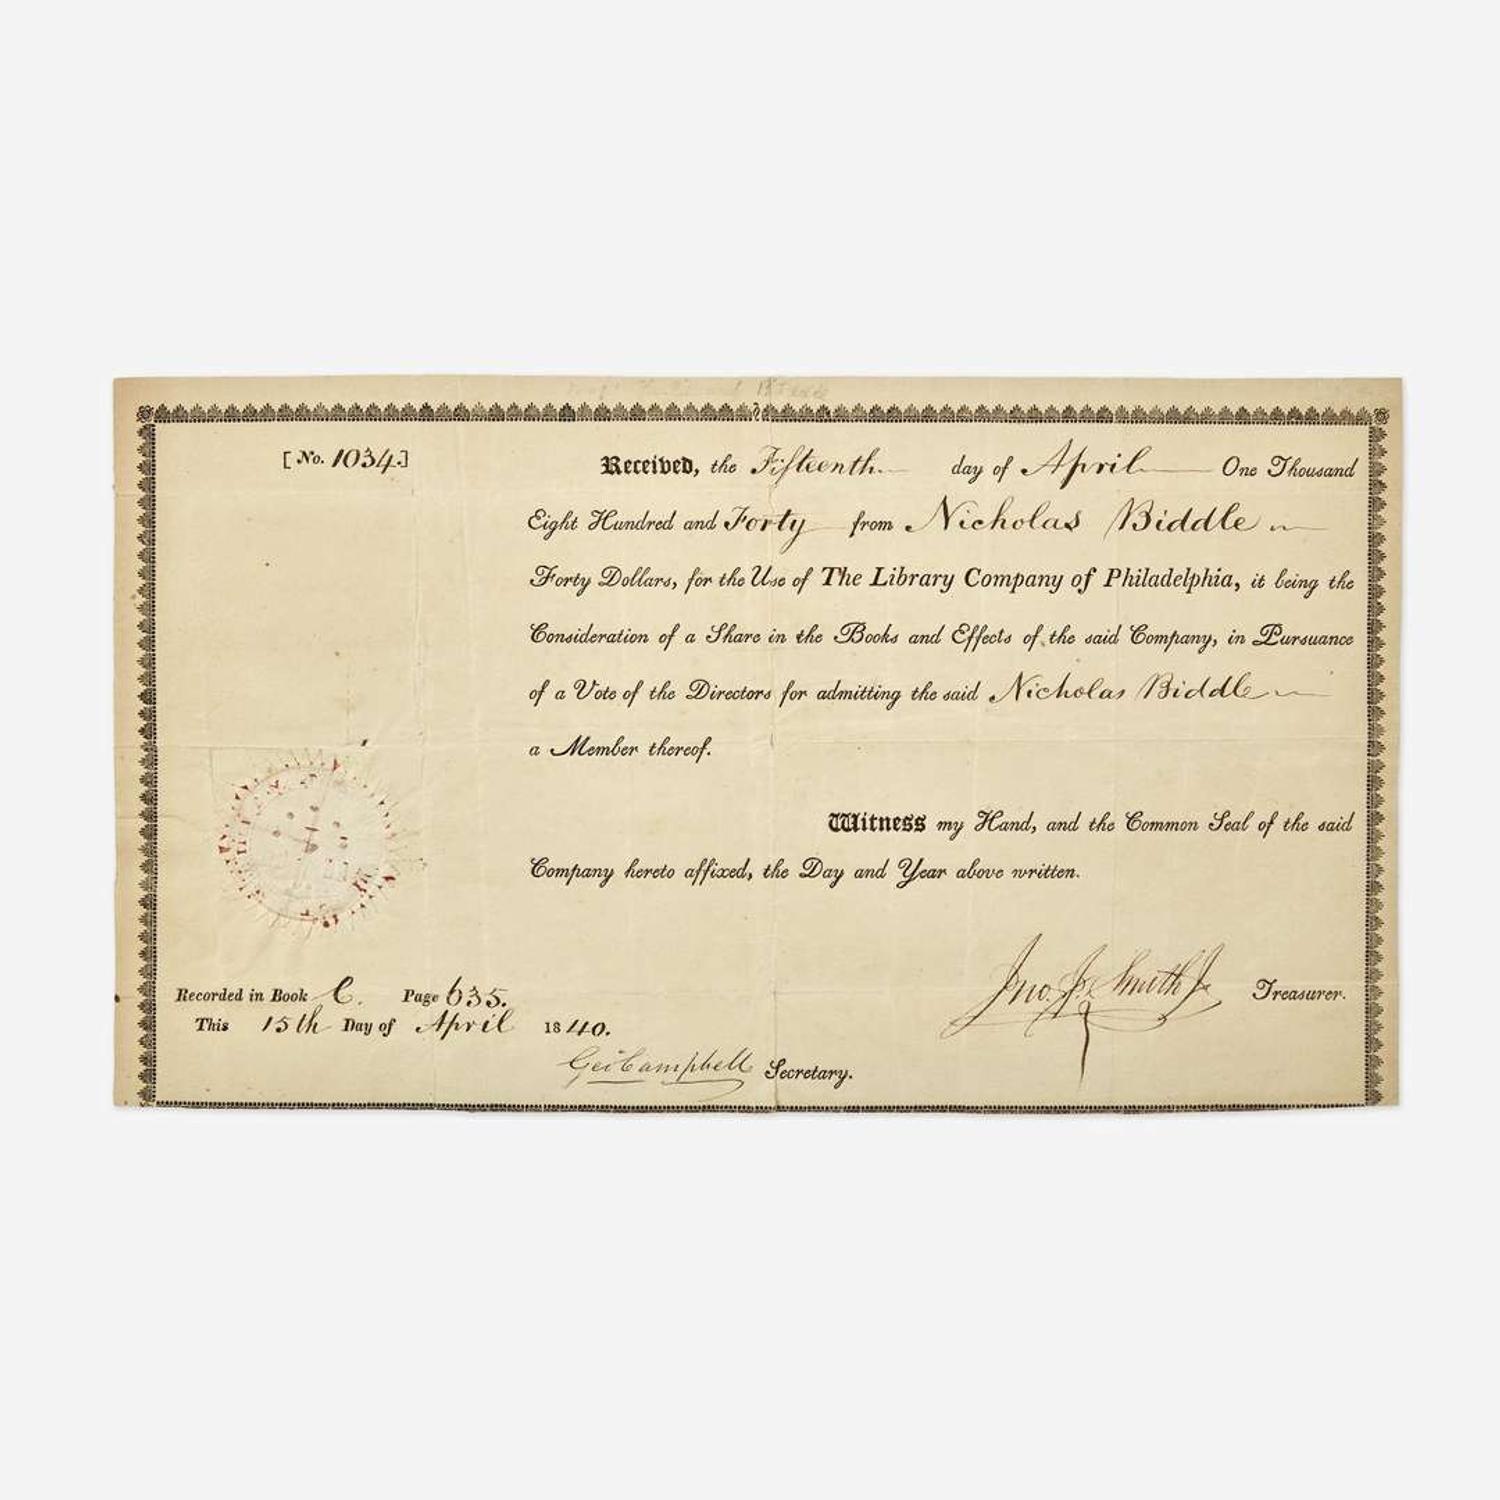 [No. 1034.]
Received, the Fifteenth day of April One Thousand
Eight Hundred and Forty from Nicholas Biddle
Forty Dollars, for the Use of The Library Company of Philadelphia, it being the
Consideration of a Share in the Books and Effects of the said Company, in Pursuance
of a Vote of the Directors for admitting the said Nicholas Biddle
a Member thereof.
Witness my Hand, and the Common Seal of the said
Company hereto affixed, the Day and Year above written.
Jno. Jay Smith Jr Treasurer.
Recorded in Book C. Page 635.
This 15th Day of April 1840.
Geo Campbell Secretary.